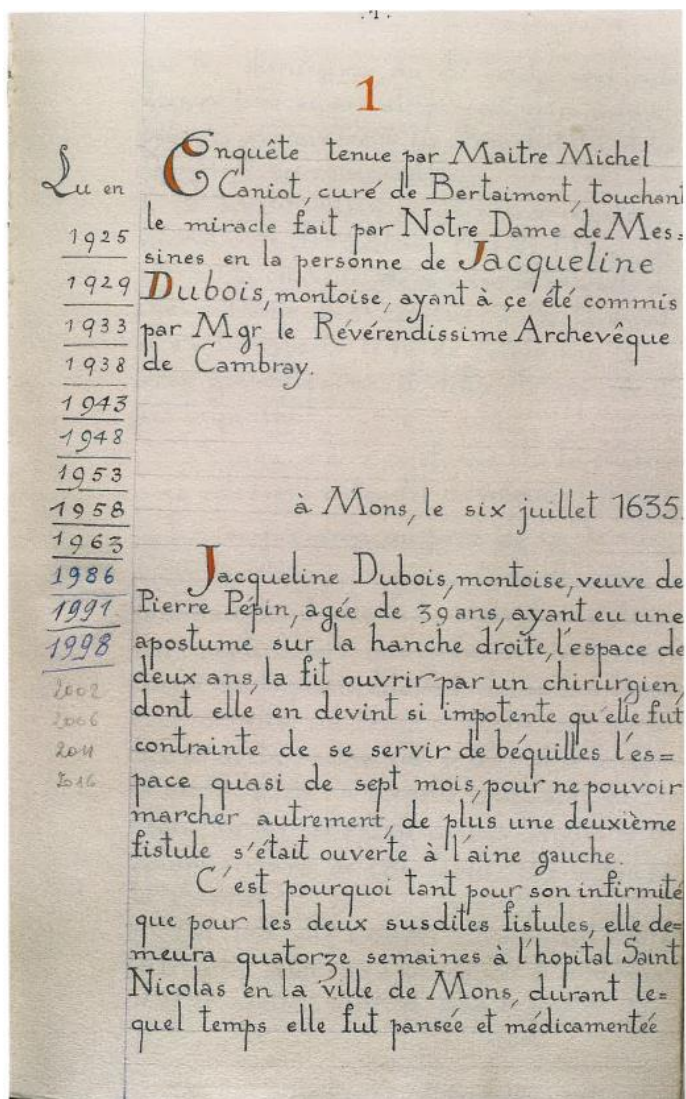 .1.
1
Enquête tenue par Maitre Michel
Caniot, curé de Bertaimont, touchant
le miracle fait par Notre Dame de Mes=
sines en la personne de Jacqueline
Dubois, montoise, ayant à çe été commis
par Mgr le Révérendissime Archevêque
de Cambray.
Lu en
1925
1929
1933
1938
1943
1948
1953
1958
1963
1986
1991
1998
2002
2006
2011
2016
à Mons, le six juillet 1635.
Jacqueline Dubois, montoise, veuve de
Pierre Pépin, agée de 39 ans, ayant eu une
apostume sur la hanche droite, l'espace de
deux ans, la fit ouvrir par un chirurgien,
dont elle en devint si impotente qu'elle fut
contrainte de se servir de béquilles l'es=
pace quasi de sept mois, pour ne pouvoir
marcher autrement, de plus une deuxième
fistule s'était ouverte à l'aine gauche.
C'est pourquoi tant pour son infirmité
que pour les deux susdites fistules, elle de=
meura quatorze semaines à l'hopital Saint
Nicolas en la ville de Mons, durant le=
quel temps elle fut pansée et médicamentée